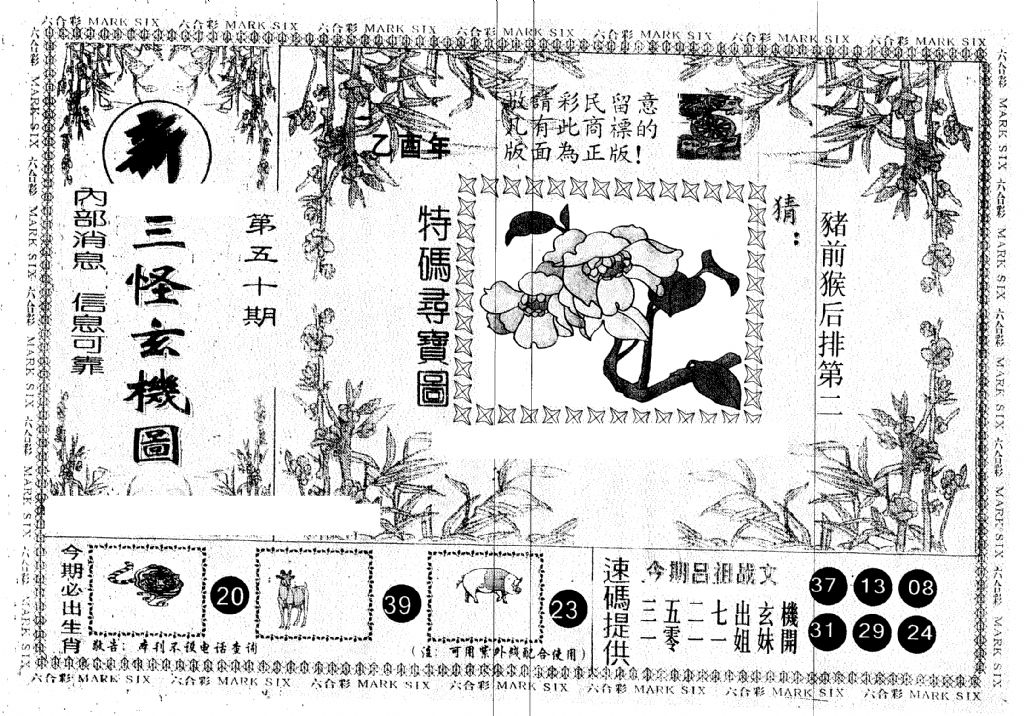 六合彩 MARK SIX 六合彩 MARK SIX 六合彩 MARK SIX 六合彩 MARK SIX 六合彩 MARK SIX 六合彩 MARK SIX 六合彩 MARK SIX
新
三怪玄機圖
內部消息 信息可靠
第五十期
乙酉年
敬請彩民留意
凡有此商標的
版面為正版!
特碼尋寶圖
猜:
豬前猴后排第二
今期必出生肖
20
39
23
敬告: 库刊不设电话查询
(注: 可用紫外线配合使用)
速碼提供
今期呂祖战文
三五二七出玄機
一零一一姐妹開
37 13 08
31 29 24
六合彩 MARK SIX 六合彩 MARK SIX 六合彩 MARK SIX 六合彩 MARK SIX 六合彩 MARK SIX 六合彩 MARK SIX 六合彩 MARK SIX